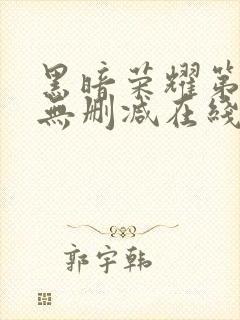 黑暗荣耀第
無删减在綫
郭宇韩